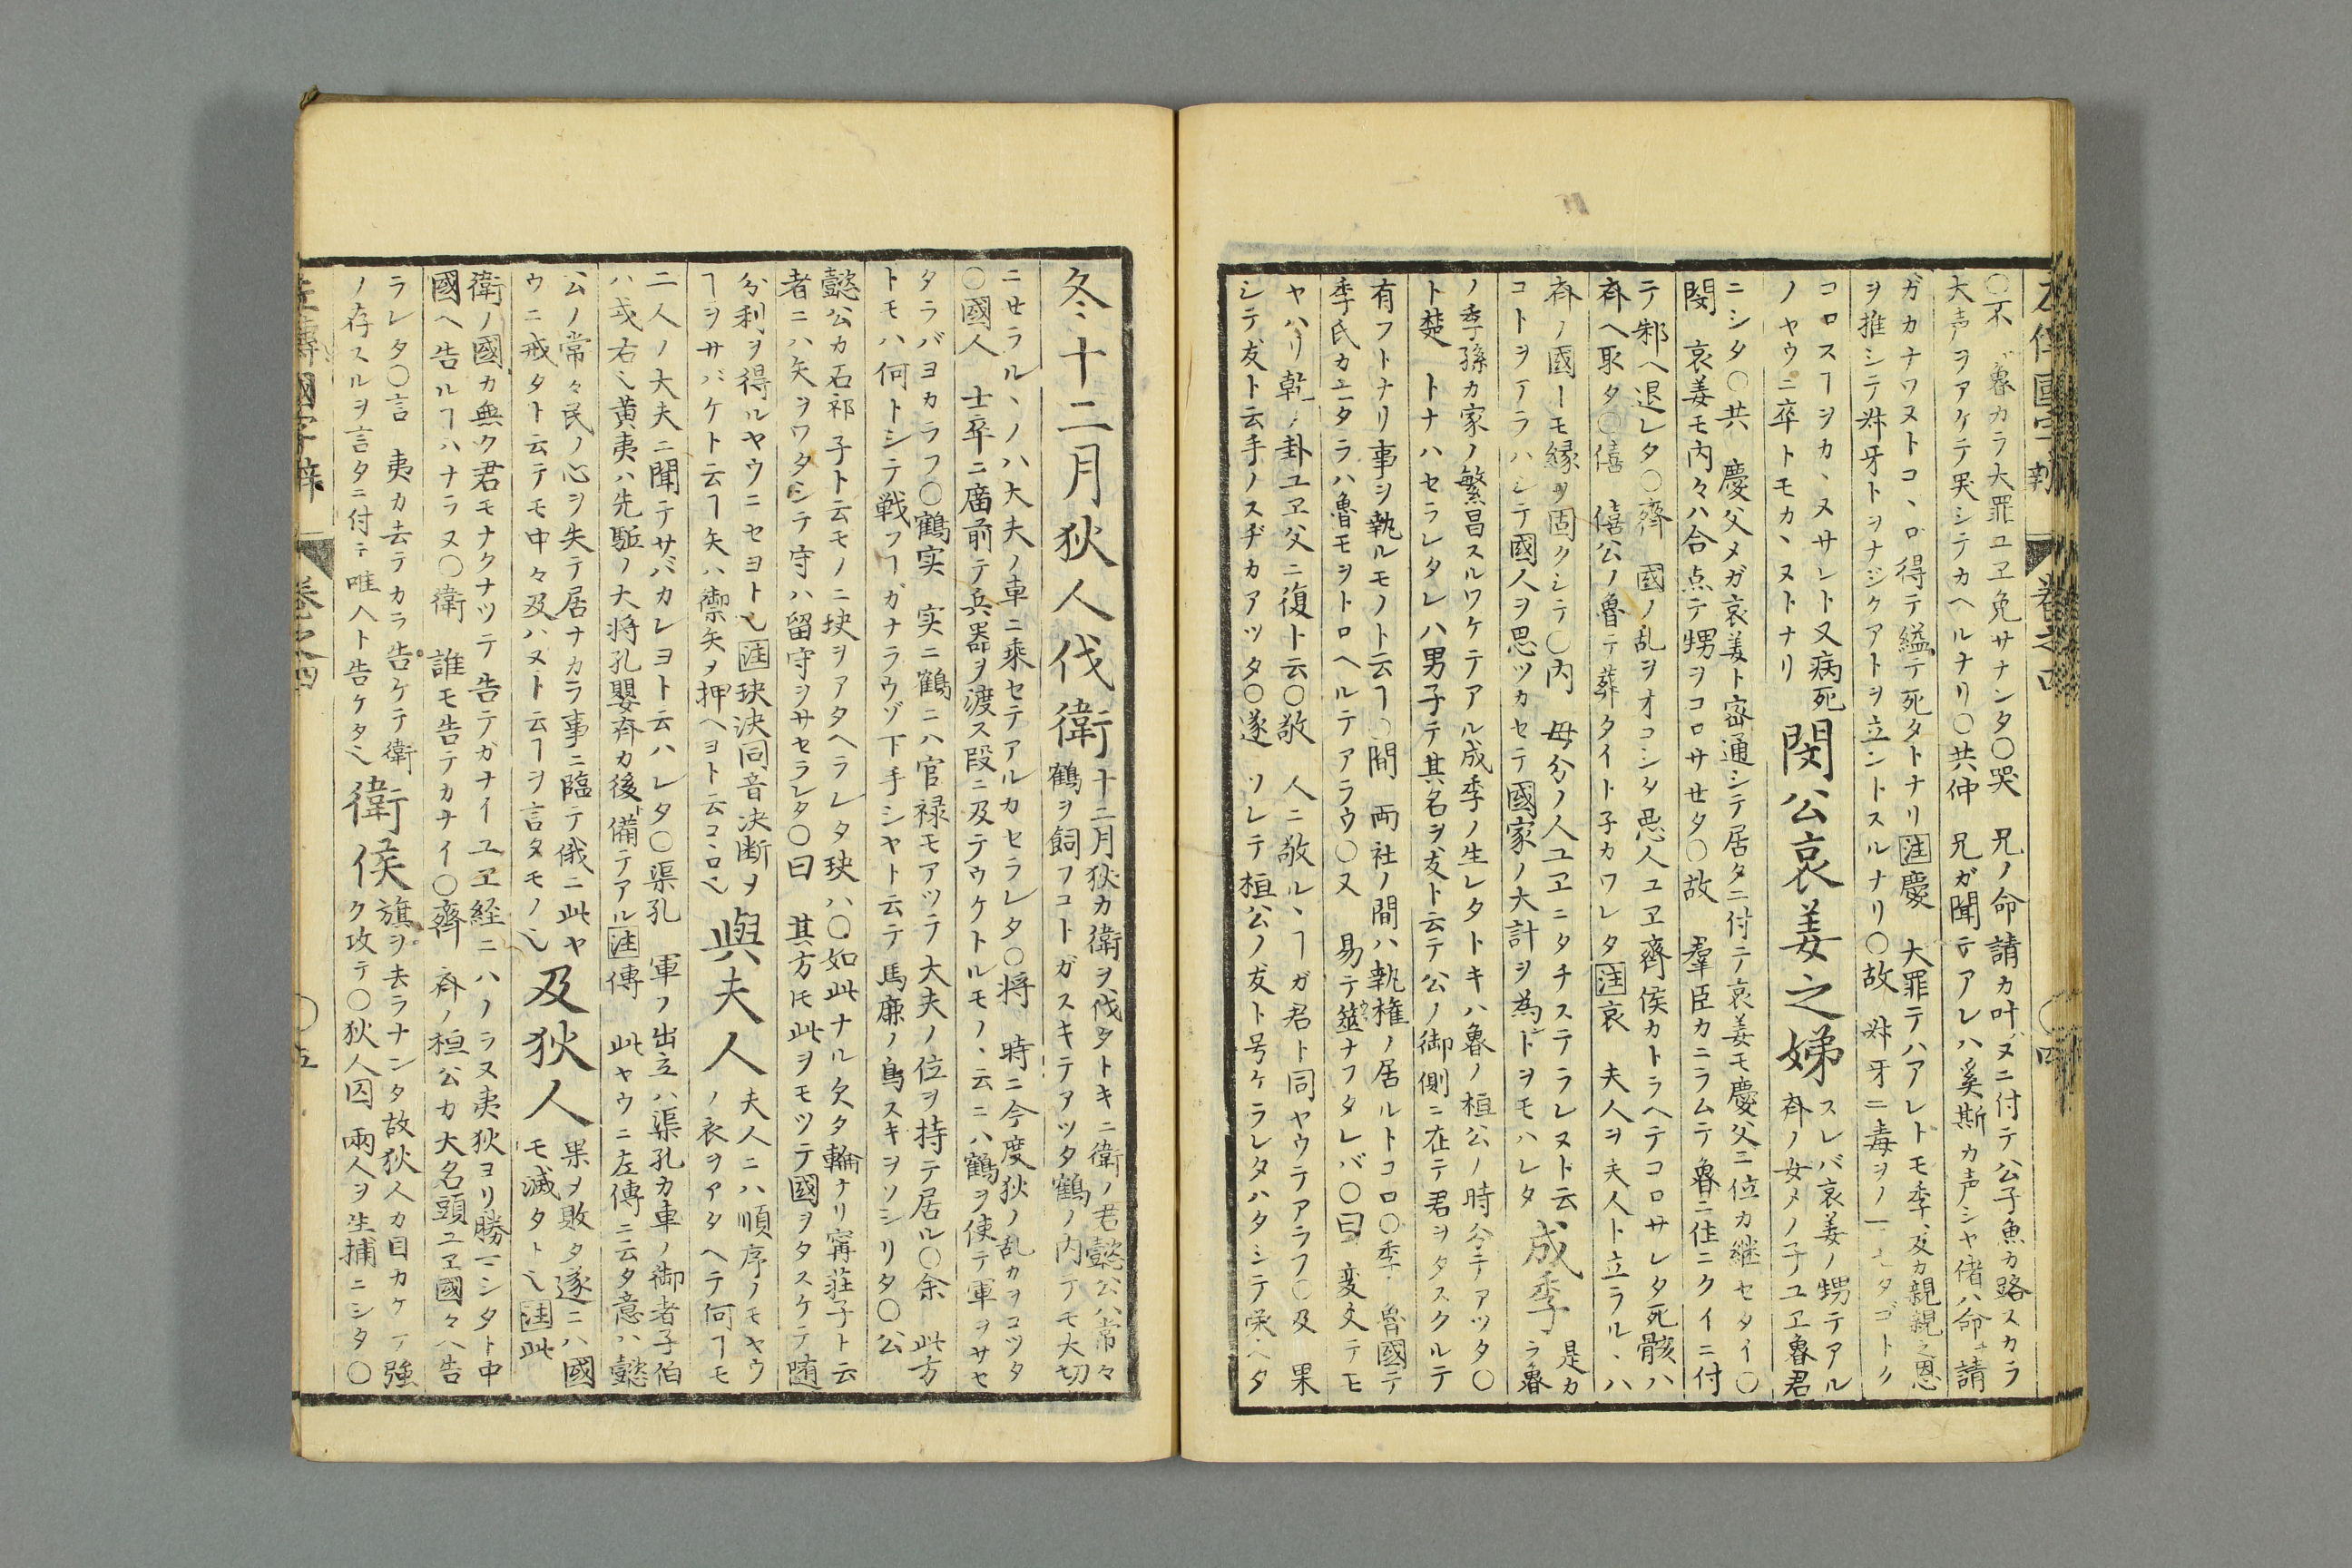 ○不 魯カラ大罪ユヱ免サナンタ○哭 兄ノ命請カ叶ヌニ付テ公子魚カ路スカラ
大声ヲアケテ哭シテカヘルナリ○共仲 兄ガ聞テアレハ奚斯カ声シヤ偖ハ命請
ガカナワヌトコヽロ得テ縊テ死タトナリ注慶 大罪テハアレトモ季友カ親親之恩
ヲ推シテ
コロスヿヲカヽヌサレト又病死
ノヤウニ卒トモカヽヌトナリ
閔公哀姜之娣
スレバ哀姜ノ甥テアル
斉ノ女メノ子ユヱ魯君
ニシタ○共 慶父メガ哀姜ト密通シテ居タニ付テ哀姜モ慶父ニ位カ継セタイ○
閔 哀姜モ内々ハ合点テ甥ヲコロサセタ○故 羣臣カニラムテ魯ニ住ニクイニ付
テ邾ヘ退レタ○齊 國ノ乱ヲオコシタ悪人ユヱ齊侯カトラヘテコロサレタ死骸ハ
斉ヘ取タ○僖 僖公ノ魯テ葬タイト子カワレタ注哀 夫人ヲ夫人ト立ラルヽハ
斉ノ國ーモ縁ヲ固クシテ○内 母分ノ人ユヱニタチステラレヌト云
コトヲアラハシテ國人ヲ思ツカセテ國家ノ大計ヲ為トヲモハレタ
成季
是カ
ラ魯
ノ季孫カ家ノ繁昌スルワケテアル成季ノ生レタトキハ魯ノ桓公ノ時分テアツタ○
ト楚 トナハセラレタレハ男子テ其名ヲ友ト云テ公ノ御側ニ在テ君ヲタスクルテ
有フトナリ事ヲ執ルモノト云ヿ○間 両社ノ間ハ執権ノ居ルトコロ○季 魯國テ
季氏カエタラハ魯モヲトロヘルテアラウ○又 易テ筮ナフタレバ○曰 変爻テモ
ヤハリ乾ノ卦ユヱ父ニ復ト云○敬 人ニ敬ルヽヿガ君ト同ヤウテアラフ○及 果
シテ友ト云手ノスヂカアツタ○遂 ソレテ桓公ノ友ト号ケラレタハタシテ栄ヘタ
冬十二月狄人伐衛
十二月狄カ衛ヲ伐タトキニ衛ノ君懿公ハ常々
鶴ヲ飼フコトガスキテアツタ鶴ノ内テモ大切
ニセラルヽノハ大夫ノ車ニ乗セテアルカセラレタ○将 時ニ今度狄ノ乱カヲコツタ
○國人 士卒ニ廣前テ兵器ヲ渡ス段ニ及テウケトルモノヽ云ニハ鶴ヲ使テ軍ヲサセ
タラバヨカラフ○鶴実 実ニ鶴ニハ官禄モアツテ大夫ノ位ヲ持テ居ル○余 此方
トモハ何トシテ戦フヿガナラウゾ下手シヤト云テ馬廉ノ鳥スキヲソシリタ○公
懿公カ石祁子ト云モノニ玦ヲアタヘラレタ玦ハ○如此ナル欠タ輪ナリ甯荘子ト云
者ニハ矢ヲワタシテ守ハ留守ヲサセラレタ○曰 其方ハ此ヲモツテ國ヲタスケテ随
分利ヲ得ルヤウニセヨト也注玦決同音決断ヲ
ヿヲサバケト云ヿ矢ハ禦矢ヲ押ヘヨト云コヽロ也
與夫人
夫人ニハ順序ノモヤウ
ノ衣ヲアタヘテ何ヿモ
二人ノ大夫ニ聞テサバカレヨト云ハレタ○渠孔 軍ノ出立ハ渠孔カ車ノ御者子伯
ハ戎右也黄夷ハ先駈ノ大将孔嬰斉カ後備テアル注傳 此ヤウニ左傳ニ云タ意ハ懿
公ノ常々民ノ心ヲ失テ居ナカラ事ニ臨テ俄ニ此ヤ
ウニ戒タト云テモ中々及ハヌト云ヿヲ言タモノ也
及狄人
果ヲ敗タ遂ニハ國
モ滅タト也注此
衛ノ國カ無ク君モナクナツテ告テガナイユヱ経ニハノラヌ夷狄ヨリ勝ーシタト中
國ヘ告ルヿハナラヌ○衛 誰モ告テカナイ○齊 斉ノ桓公カ大名頭ユヱ國々ヘ告
ラレタ○言 夷カ去テカラ告ケテ衛
ノ存スルヲ言タニ付テ唯入ト告ケタ也
衛侯
旗ヲ去ラナンタ故狄人カ目カケテ強
ク攻テ○狄人囚 兩人ヲ生捕ニシタ○